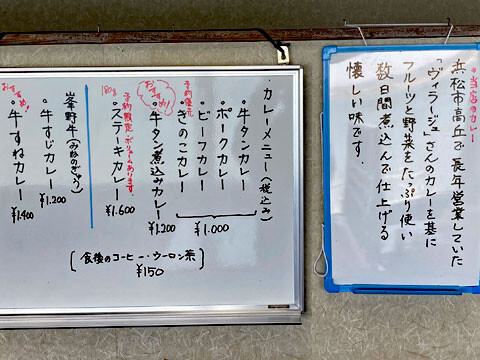 ・当店のカレー
浜松市高丘で長年営業していた
「ヴィラージュ」さんのカレーを基に
フルーツと野菜をたっぷり使い
数日間煮込んで仕上げる
懐しい味です。
・カレーメニュー(税込み)
・牛タンカレー
・ポークカレー
・ビーフカレー
・きのこカレー
¥1.000
おすすめ!
・牛タン煮込みカレー
¥1.200
180g
・ステーキカレー
¥1.600
峯野牛(みねのぎゅう)
・牛すじカレー
¥1.200
おすすめ!
・牛すねカレー
¥1.400
(食後のコーヒー・ウーロン茶)
¥150